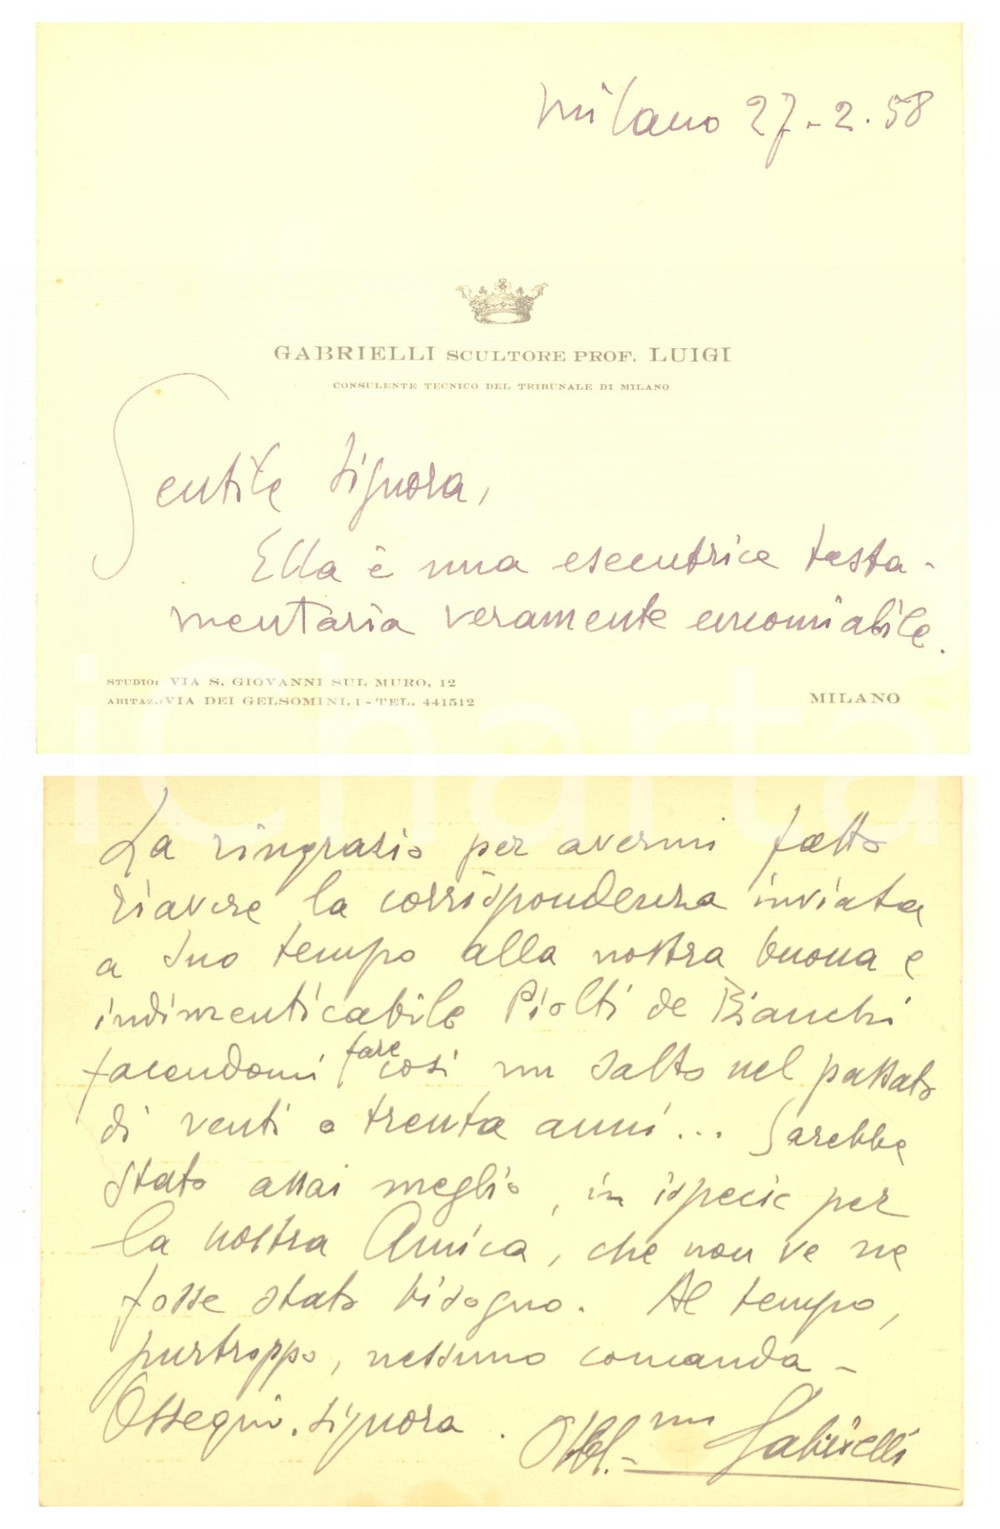 Milano 27-2.58
GABRIELLI SCULTORE PROF. LUIGI
CONSULENTE TECNICO DEL TRIBUNALE DI MILANO
Gentile Signora,
Ella è una esecutrice testa-
mentaria veramente encomiabile.
STUDIO: VIA S. GIOVANNI SUL MURO, 12
ABITAZ.: VIA DEI GELSOMINI, 1 - TEL. 441512
MILANO
La ringrazio per avermi fatto
riavere la corrispondenza inviata
a suo tempo alla nostra buona e
indimenticabile Piolti de Bianchi
facendomi fare così un salto nel passato
di venti o trenta anni... Sarebbe
stato assai meglio, in ispecie per
la nostra Amica, che non ve ne
fosse stato bisogno. Al tempo,
purtroppo, nessuno comanda -
Ossequi, signora. Obbl.mo Gabrielli